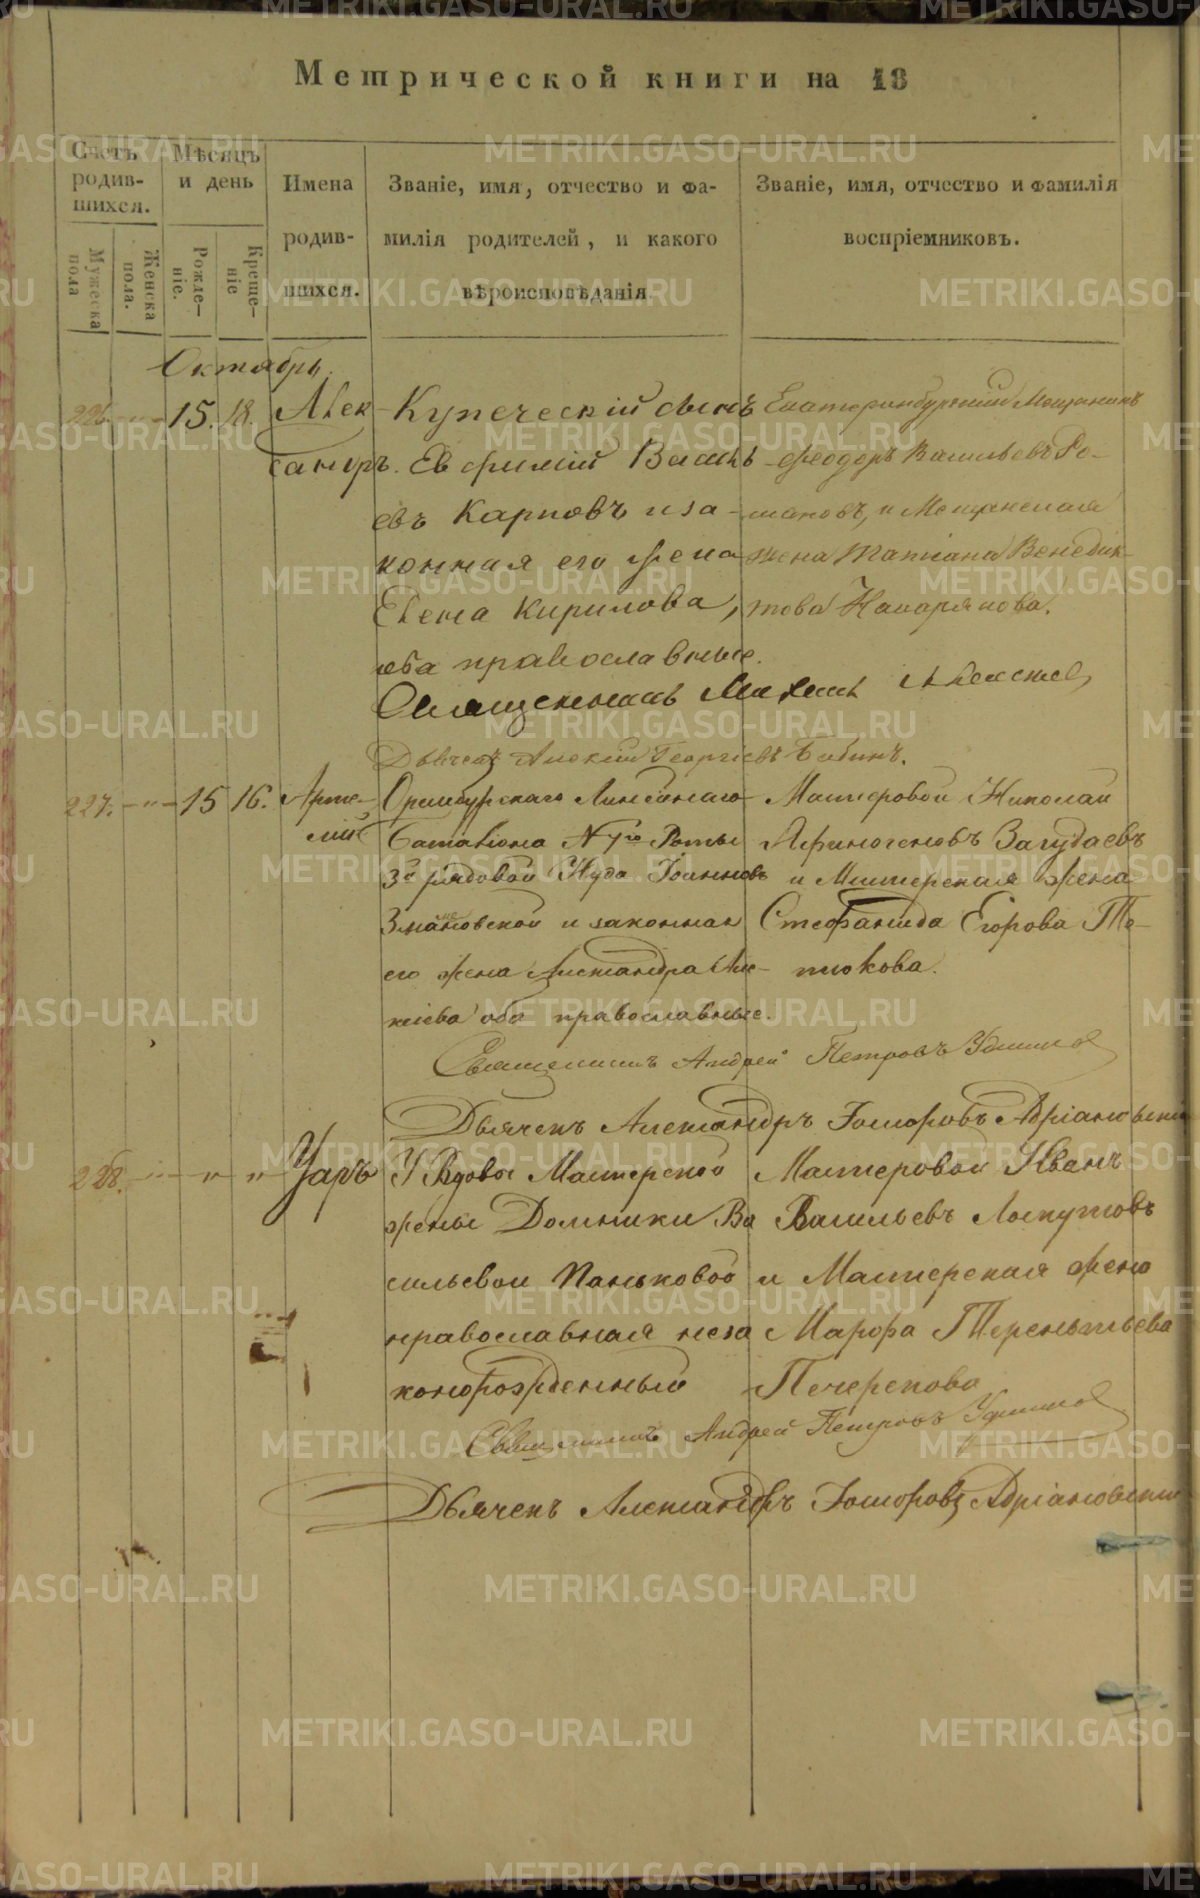 Метрической книги на 18
Счетъ родив-шихся.
Мужеска пола
Женска пола.
Мѣсяцъ и день
Рожде-ніе.
Креще-ніе
Имена
родив-
шихся.
Званіе, имя, отчество и фа-
милія родителей, и какого
вѣроисповѣданія
Званіе, имя, отчество и фамилія
воспріемниковъ.
Октябрь.
226. - " - 15. 18. Алек-
сандръ.
Купеческій сынъ
Евфимій Василь
евъ Карповъ и за-
конная его жена
Елена Кирилова,
оба православные.
Екатеринбургскій Мещанинъ
Феодоръ Васильевъ Ро-
мановъ, и Мещанская
жена Татіана Венедик-
това
Священникъ
Дьячекъ Алексій Георгіевъ Бабинъ.
227. - " - 15 16. Арте-
мій
Оренбургскаго Линейнаго
Баталіона № Роты
3й рядовой Іоанновъ
и законная
его жена Александра Але-
ксіева оба православные.
Мастеровой Николай
Афиногеновъ Загудаевъ
и Мастерская жена
Стефанида Егорова Те-
пткова.
Священникъ Андрей Петровъ
Дьячекъ Александръ Адріановскій
228. - " - " " Уаръ
У Вдовы Мастерской
жены Домники Ва
сильевой Паньковой
православная неза
коннорожденный
Мастеровой Иванъ
Васильевъ Лоскутовъ
и Мастерская жена
Марфа Терентьева
Печеркова
Священникъ Андрей Петровъ
Дьячекъ Александръ Адріановскій
METRIKI.GASO-URAL.RU